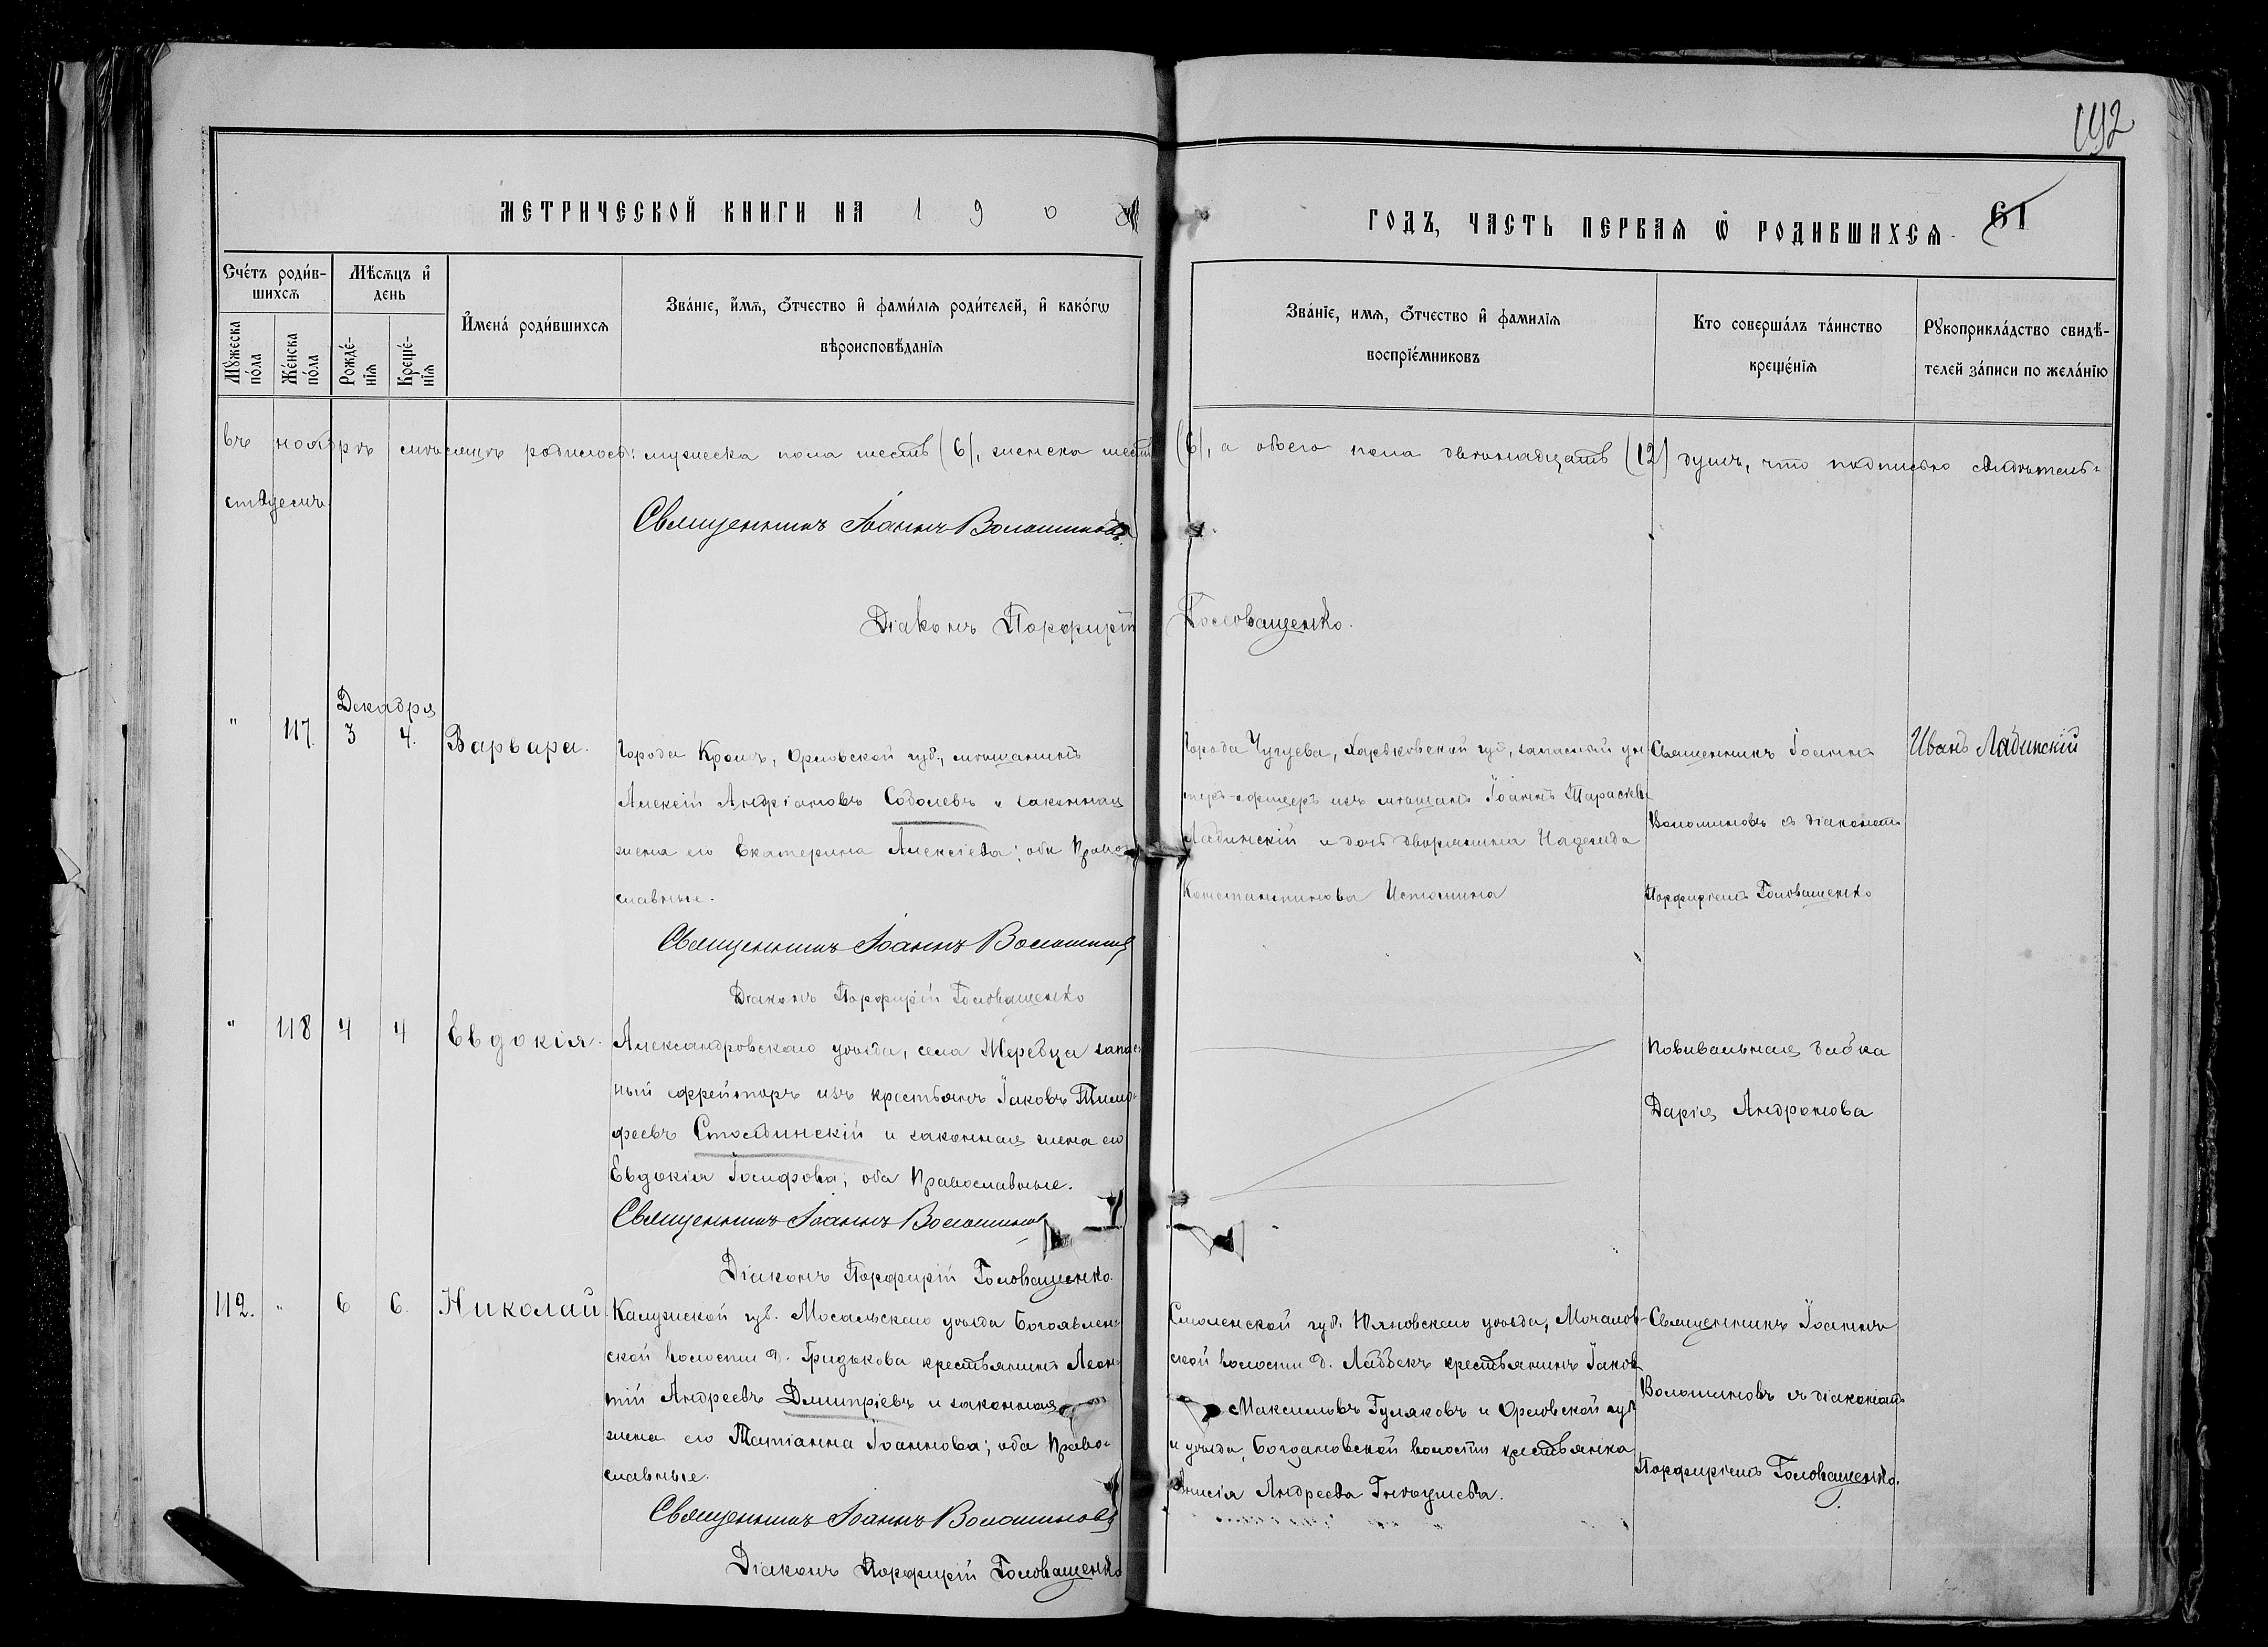 192
МЕТРИЧЕСКОЙ КНИГИ НА 190
ГОДЪ, ЧАСТЬ ПЕРВАЯ Ѿ РОДИВШИХСЯ.
61
Сче́тъ роди́вшихсѧ
Мѣсѧцъ и҆ день
И҆мена́ роди́вшихсѧ
Зва́нїе, и҆́мѧ, ѻ҆́тчество и҆ фами́лїѧ роди́телей, и҆ како́гѡ
вѣроисповѣ́данїѧ
Мꙋ́жеска по́ла
Же́нска по́ла
Рожде́нїѧ
Креще́нїѧ
Зва́нїе, имѧ, ѻ҆́тчество и҆ фамилїѧ
воспрїе́мниковъ
Кто соверша́лъ та́инство
креще́нїѧ
Рꙋкоприкла́дство свидѣ́-
телей за́писи по жела́нїю
въ ноябрѣ мѣсяцѣ родилось: мужеска пола шесть (6), женска шесть (6), а обоего пола двѣнадцать (12) душъ, что подписью свидѣтель-
ствуемъ.
Священникъ Іоаннъ Волошиновъ
Діаконъ Порфирій Головащенко.
Декабря
" 117. 3 4. Варвара.
Города Кромъ, Орловской губ., мѣщанинъ
Алексій Андріановъ Соболевъ и законная
жена его Екатерина Алексіева; оба Право-
славные.
Священникъ Іоаннъ Волошиновъ
Діаконъ Порфирій Головащенко
Города Чугуева, Харьковской губ., запасный ун-
теръ-офицеръ изъ мѣщанъ Іоаннъ Тарасіевъ
Ладинскій и дочь дворянина Надежда
Константинова Истомина
Священникъ Іоаннъ
Волошиновъ съ діакономъ
Порфиріемъ Головащенко
Иванъ Ладинскій
" 118 4 4 Евдокія.
Александровскаго уѣзда, села Жеребца запас-
ный ефрейторъ изъ крестьянъ Іаковъ Тимо-
феевъ Столбинскій и законная жена его
Евдокія Іосифова; оба Православные.
Священникъ Іоаннъ Волошиновъ
Діаконъ Порфирій Головащенко.
Повивальная бабка
Дарія Андронова
112. " 6 6. Николай
Калужской губ. Мосальскаго уѣзда Богоявлен-
ской волости д. Гридюкова крестьянинъ Леон-
тій Андреевъ Дмитріевъ и законная
жена его Татіанна Іоаннова; оба Право-
славные.
Священникъ Іоаннъ Волошиновъ
Діаконъ Порфирій Головащенко
Смоленской губ. Юхновскаго уѣзда, Мочалов-
ской волости д. крестьянинъ Іаковъ
Максимовъ Гуляковъ и Орловской губ.
и уѣзда, Богдановской волости крестьянка
Анисія Андреева
Священникъ Іоаннъ
Волошиновъ съ діакономъ
Порфиріемъ Головащенко.